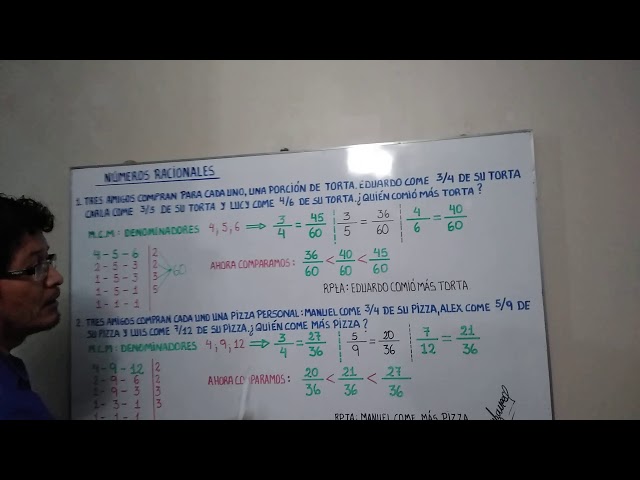 NÚMEROS RACIONALES
1. TRES AMIGOS COMPRAN PARA CADA UNO, UNA PORCIÓN DE TORTA. EDUARDO COME 3/4 DE SU TORTA
CARLA COME 3/5 DE SU TORTA Y LUCY COME 4/6 DE SU TORTA. ¿QUIÉN COMIÓ MÁS TORTA?
M.C.M: DENOMINADORES 4,5,6 ⇒ 3/4 = 45/60 3/5 = 36/60 4/6 = 40/60
4-5-6 2
2-5-3 2
1-5-3 3
1-5-1 5
1-1-1
60
AHORA COMPARAMOS: 36/60 < 40/60 < 45/60
RPTA: EDUARDO COMIÓ MÁS TORTA
2. TRES AMIGOS COMPRAN CADA UNO UNA PIZZA PERSONAL: MANUEL COME 3/4 DE SU PIZZA, ALEX COME 5/9 DE
SU PIZZA Y LUIS COME 7/12 DE SU PIZZA. ¿QUIÉN COME MÁS PIZZA?
M.C.M: DENOMINADORES 4,9,12 ⇒ 3/4 = 27/36 5/9 = 20/36 7/12 = 21/36
4-9-12 2
2-9-6 2
1-9-3 3
1-3-1 3
1-1-1
AHORA COMPARAMOS: 20/36 < 21/36 < 27/36
RPTA: MANUEL COME MÁS PIZZA